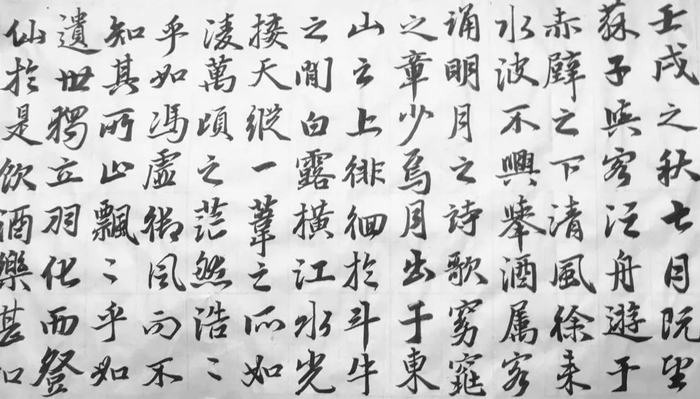 壬戌之秋七月既望
蘇子與客泛舟遊于
赤壁之下清風徐来
水波不興舉酒屬客
誦明月之詩歌窈窕
之章少焉月出于東
山之上徘徊於斗牛
之間白露橫江水光
接天縱一葦之所如
淩萬頃之茫然浩〻
乎如馮虛御風而不
知其所止飄〻乎如
遺世獨立羽化而登
仙於是飲酒樂甚扣